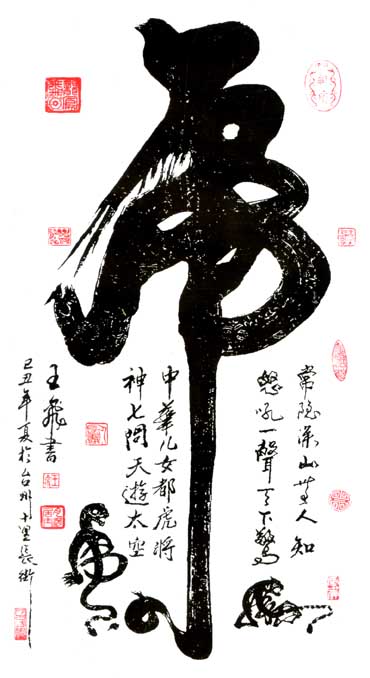 虎
常隐深山无人知
怒吼一聲天下驚
中華儿女都虎将
神七問天遊太空
王飛書
己丑年夏於台州十里長街